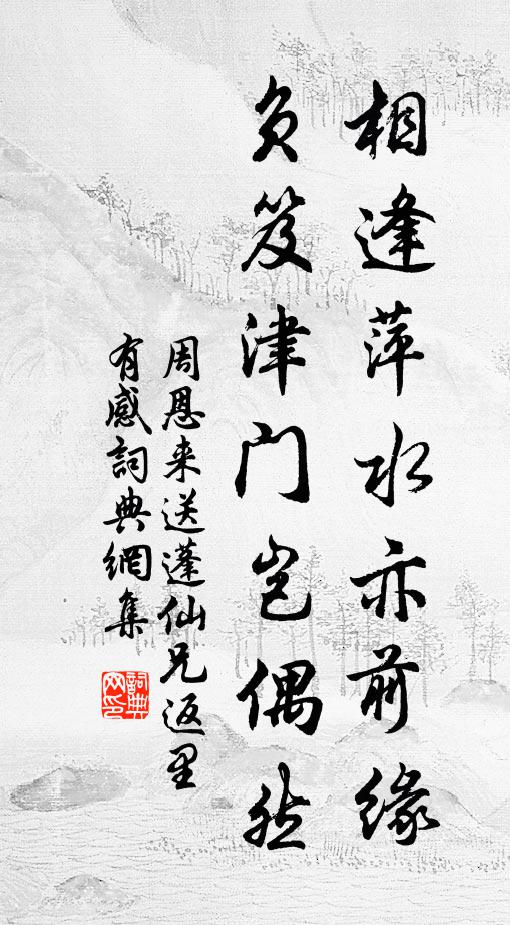 相逢萍水亦前缘
负笈津门岂偶然
周恩来送蓬仙兄返里
有感词典網集
詞典
网印